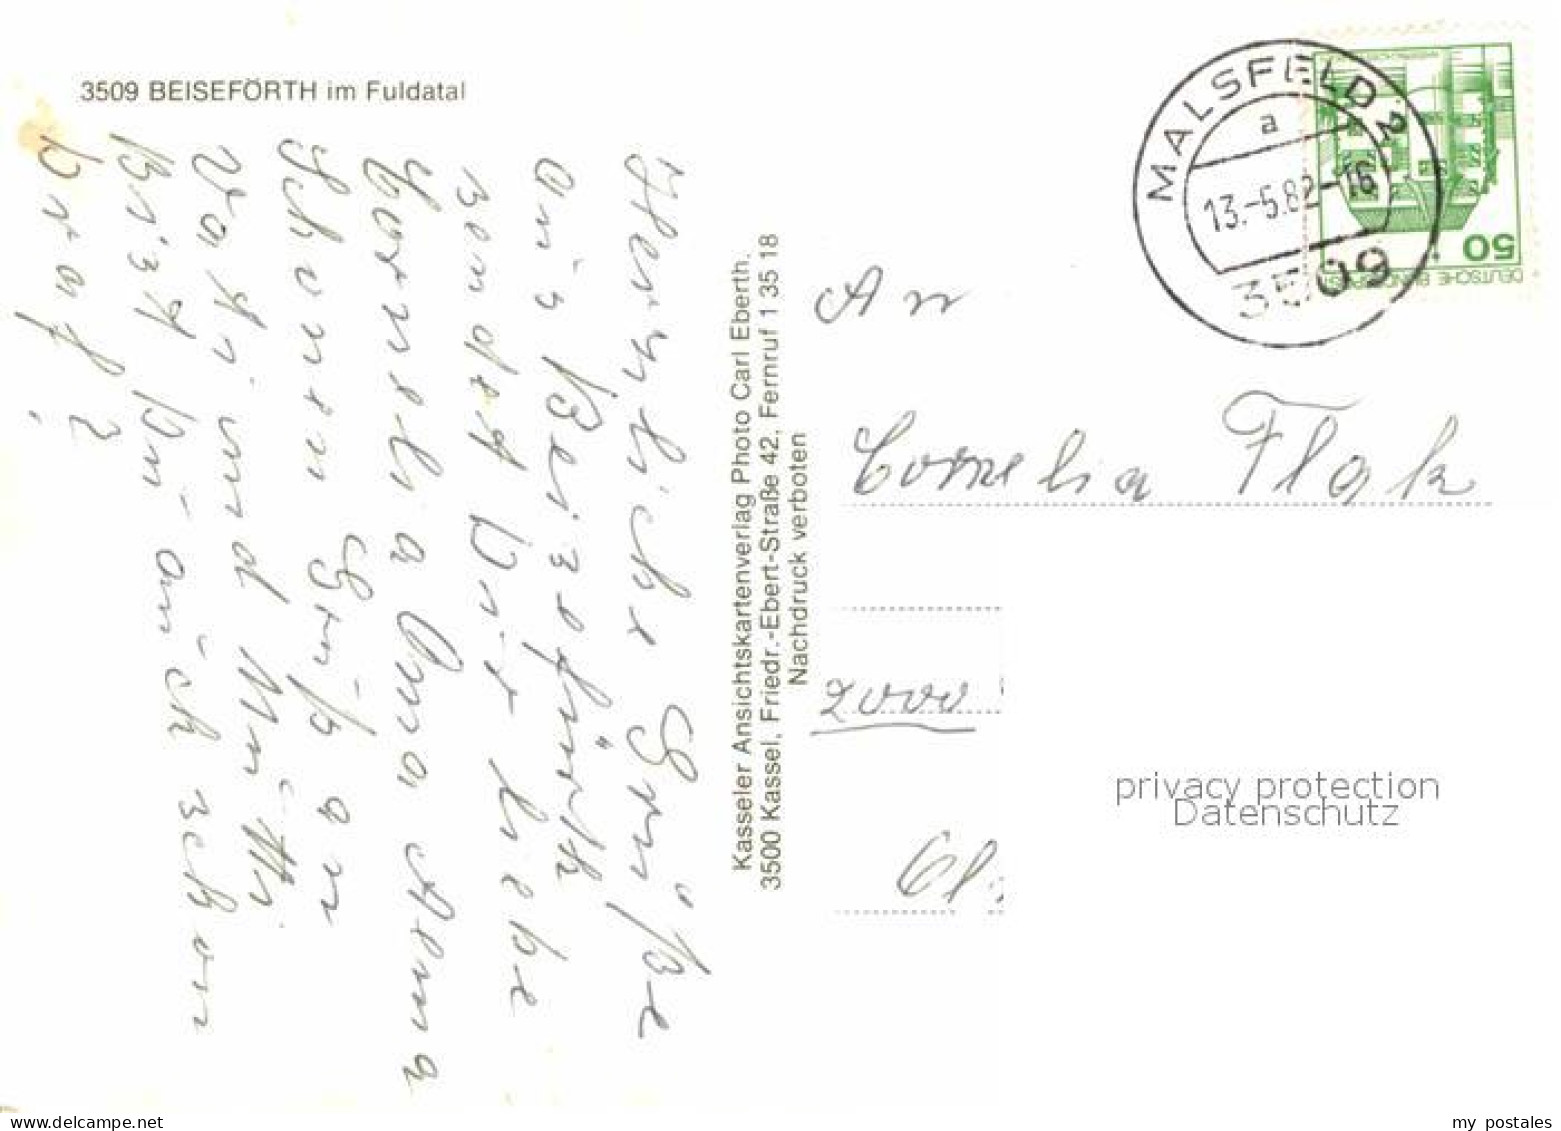 3509 BEISEFÖRTH im Fuldatal
Herzliche Grüße
aus Beiseförth
sendet Dir liebe
Cornelia Oma Anna
Schönen Gruß an
Vati und Mutti
Bist Du auch schon
brav?
Kasseler Ansichtskartenverlag Photo Carl Eberth.
3500 Kassel, Friedr.-Ebert-Straße 42, Fernruf 1 35 18
Nachdruck verboten
MALSFELD 2
a
13.-5.82-16
3509
50
DEUTSCHE BUNDESPOST
An
Cornelia Flak
2000
privacy protection
Datenschutz
my postales